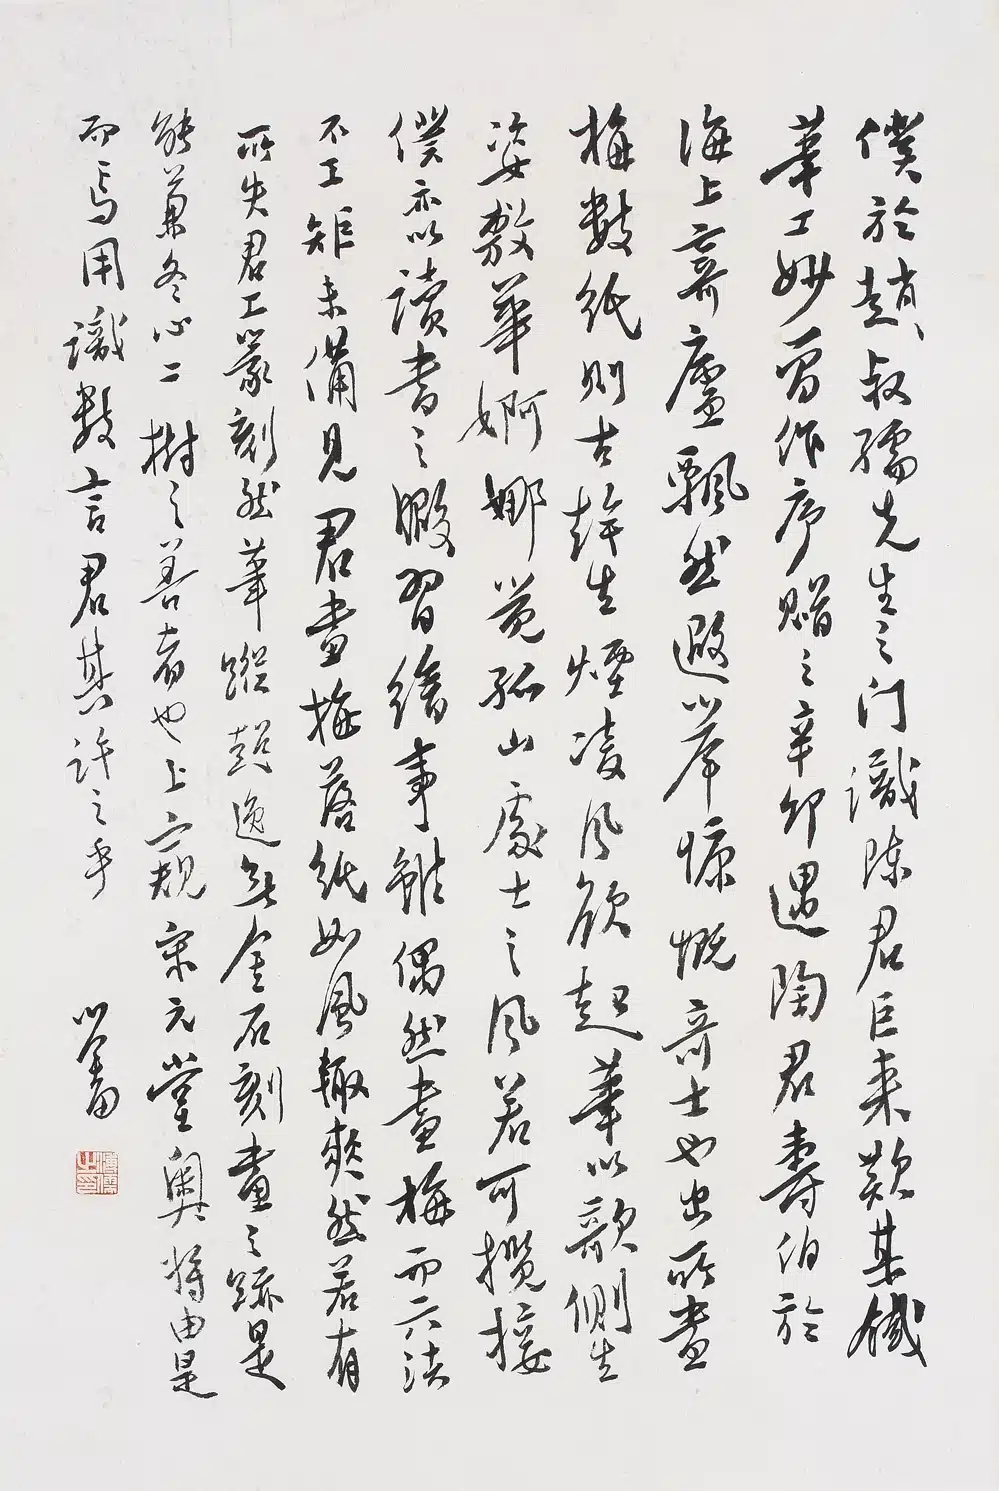 僕於趙叔孺先生之门識陳君巨来歎其鐵
筆工妙曽作序贈之辛卯遇陶君壽伯於
海上寄廬飄然遐举慷慨奇士也出所畫
梅數纸则古幹生煙凌风欲起華以欹侧生
姿敷華婀娜覚孤山處士之风若可攬接
僕亦以讀書之暇習繪事雖偶然畫梅而六法
不工矩未備見君畫梅落纸如風輙爽然若有
所失君工篆刻然筆蹤超逸無金石刻畫之跡是
能兼冬心二樹之善者也上窺宋元堂奥将由是
而焉用識數言君其許之乎
心畬
溥儒之印